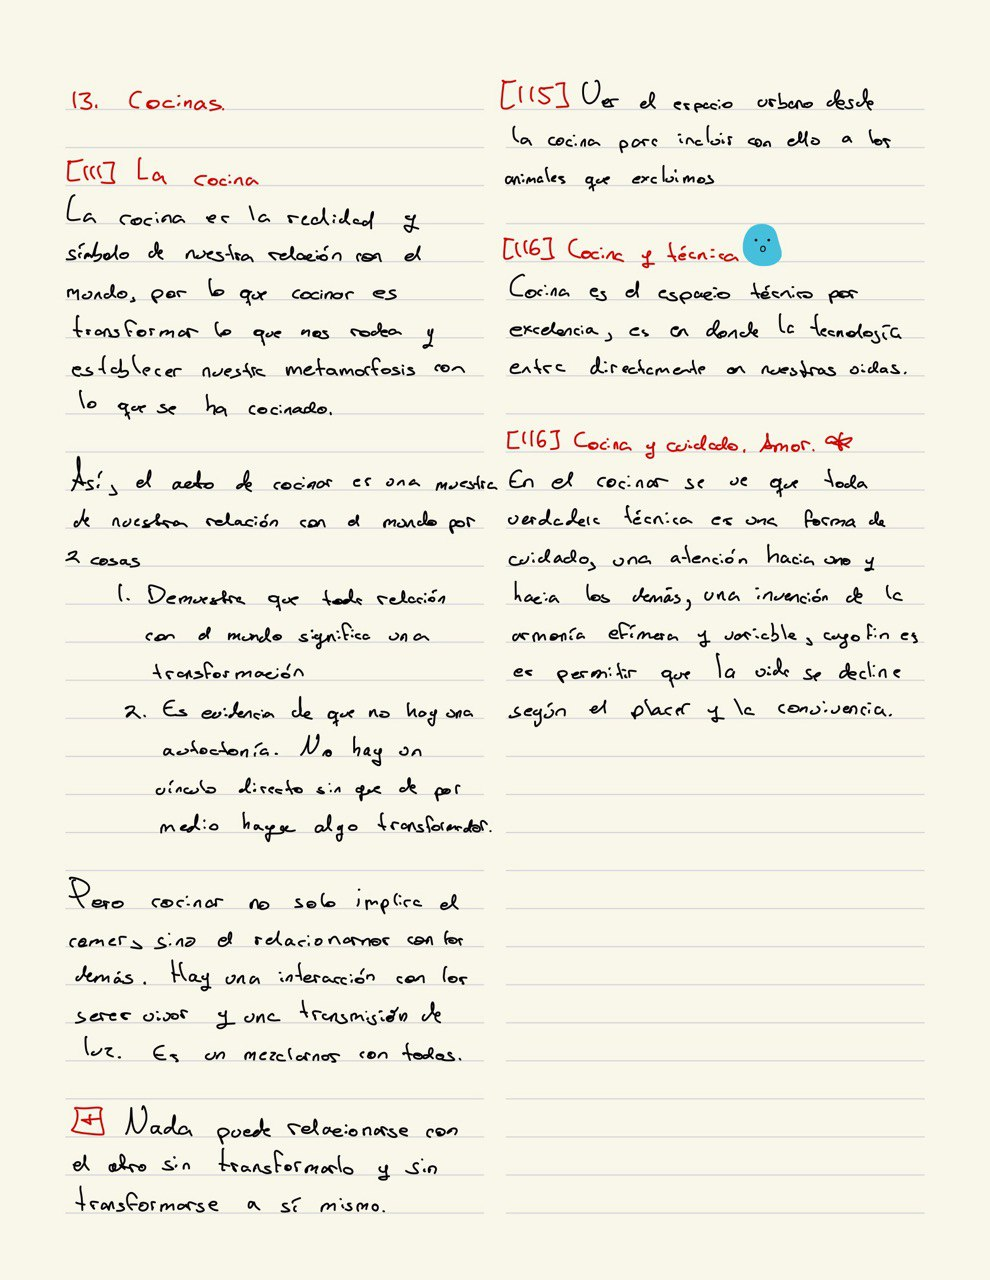 13. Cocinas.
[111] La cocina
La cocina es la realidad y
símbolo de nuestra relación con el
mundo, por lo que cocinar es
transformar lo que nos rodea y
establecer nuestra metamorfosis con
lo que se ha cocinado.
Así, el acto de cocinar es una muestra
de nuestra relación con el mundo por
2 cosas
1. Demuestra que toda relación
con el mundo significa una
transformación
2. Es evidencia de que no hay una
autoctonía. No hay un
vínculo directo sin que de por
medio haya algo transformador.
Pero cocinar no solo implica el
comer, sino el relacionarnos con los
demás. Hay una interacción con los
seres vivos y una transmisión de
luz. Es un mezclarnos con todas.
Nada puede relacionarse con
el otro sin transformarlo y sin
transformarse a sí mismo.
[115] Ver el espacio urbano desde
la cocina para incluir con ello a los
animales que excluimos
[116] Cocina y técnica
Cocina es el espacio técnico por
excelencia, es en donde la tecnología
entra directamente en nuestras vidas.
[116] Cocina y cuidado. Amor.
En el cocinar se ve que toda
verdadera técnica es una forma de
cuidado, una atención hacia uno y
hacia los demás, una invención de la
armonía efímera y variable, cuyo fin es
es permitir que la vida se decline
según el placer y la convivencia.